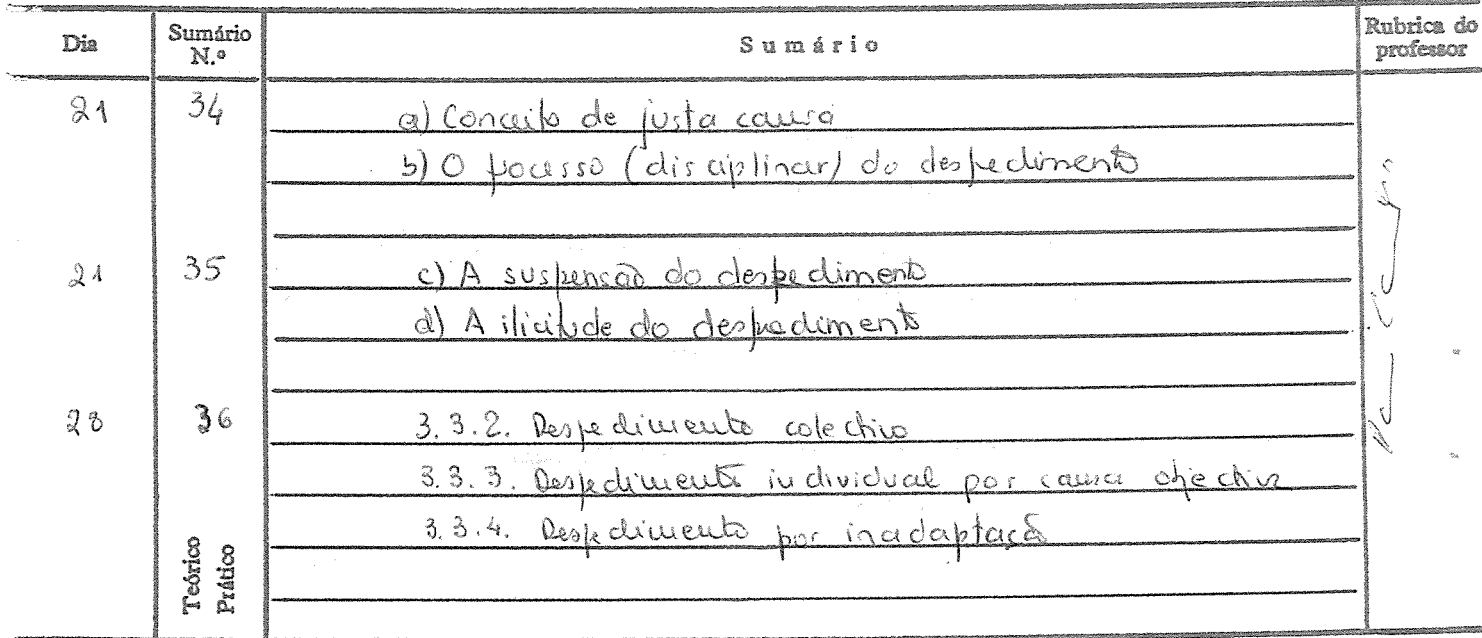 Dia Sumário N.º Sumário Rubrica do professor
21 34 a) Conceito de justa causa
b) O pocesso (disciplinar) do despedimento
21 35 c) A suspensão do despedimento
d) A ilicitude do despedimento
28 36 3.3.2. Despedimento colectivo
3.3.3. Despedimento individual por causa objectiva
3.3.4. Despedimento por inadaptação
Teórico
Prático